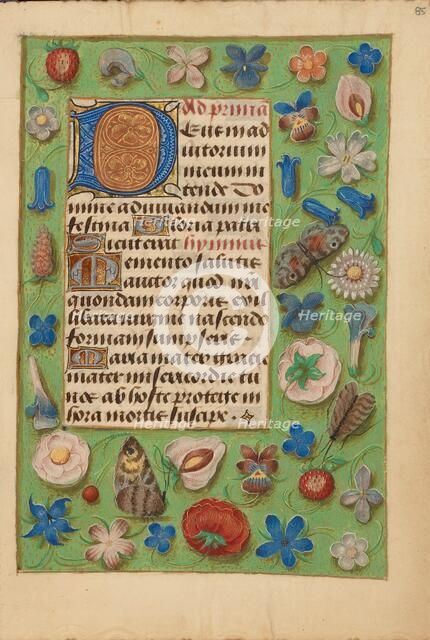 85
Ad primā
Deus in ad
iutorium
meum in
tende Do
mine ad iuuandum me
festina Gloria patri
Sicut erat hymnus
Memento salutis
auctor quod nri
quondam corporis ex il
libata uirgine nascendo
formam sumpseris.
Maria mater gracie
mater misericordie tu
nos ab hoste protege in
hora mortis suscipe.
Heritage
Heritage
Heritage
Heritage
Heritage
Heritage
Heritage